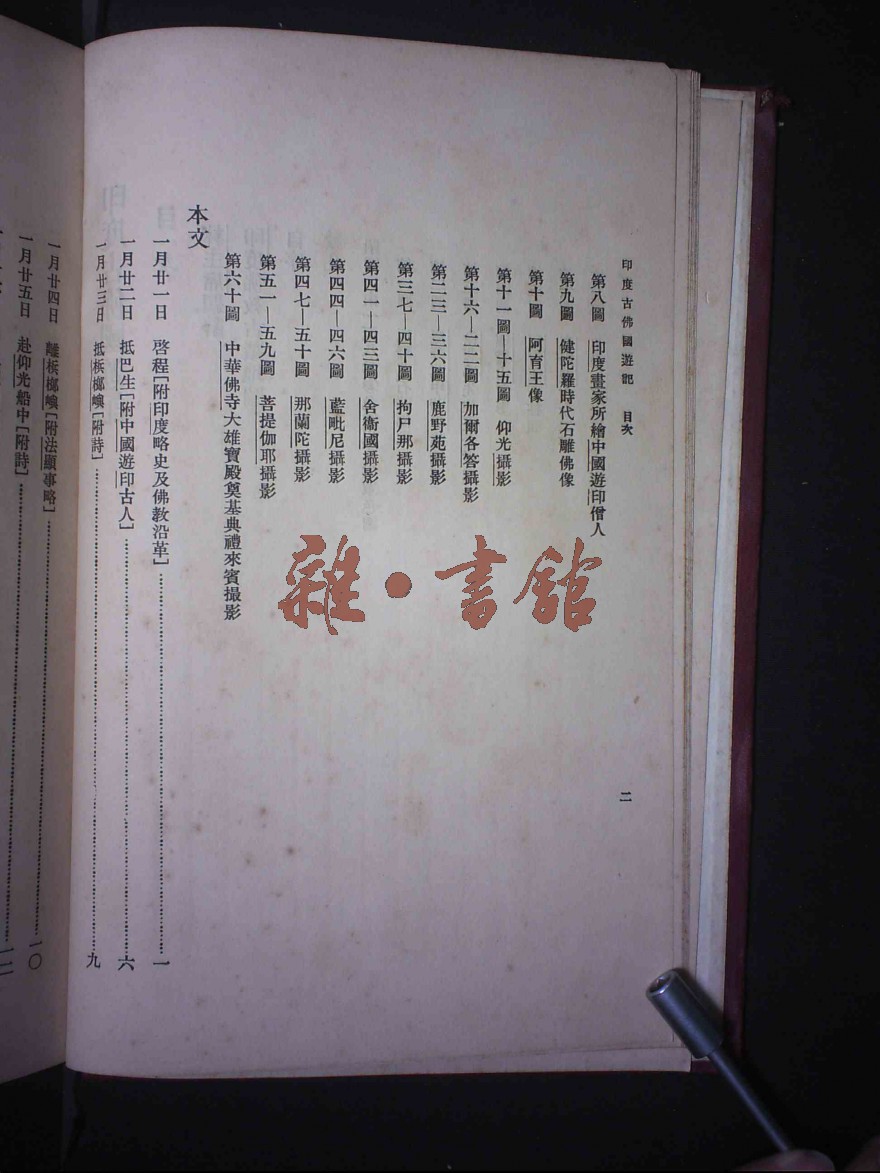 印度古佛國遊記　目次
二
第八圖　印度畫家所繪中國遊印僧人
第九圖　健陀羅時代石雕佛像
第十圖　阿育王像
第十一圖—十五圖　仰光攝影
第十六—二二圖　加爾各答攝影
第二三—三六圖　鹿野苑攝影
第三七—四十圖　拘尸那攝影
第四一—四三圖　舍衞國攝影
第四四—四六圖　藍毗尼攝影
第四七—五十圖　那蘭陀攝影
第五一—五九圖　菩提伽耶攝影
第六十圖　中華佛寺大雄寶殿奠基典禮來賓撮影
本文
一月廿一日　啓程［附印度略史及佛教沿革］……一
一月廿二日　抵巴生［附中國遊印古人］……六
一月廿三日　抵梹榔嶼［附詩］……九
一月廿四日　離梹榔嶼［附法顯事略］……一〇
一月廿五日　赴仰光船中［附詩］……一二
雜·書館